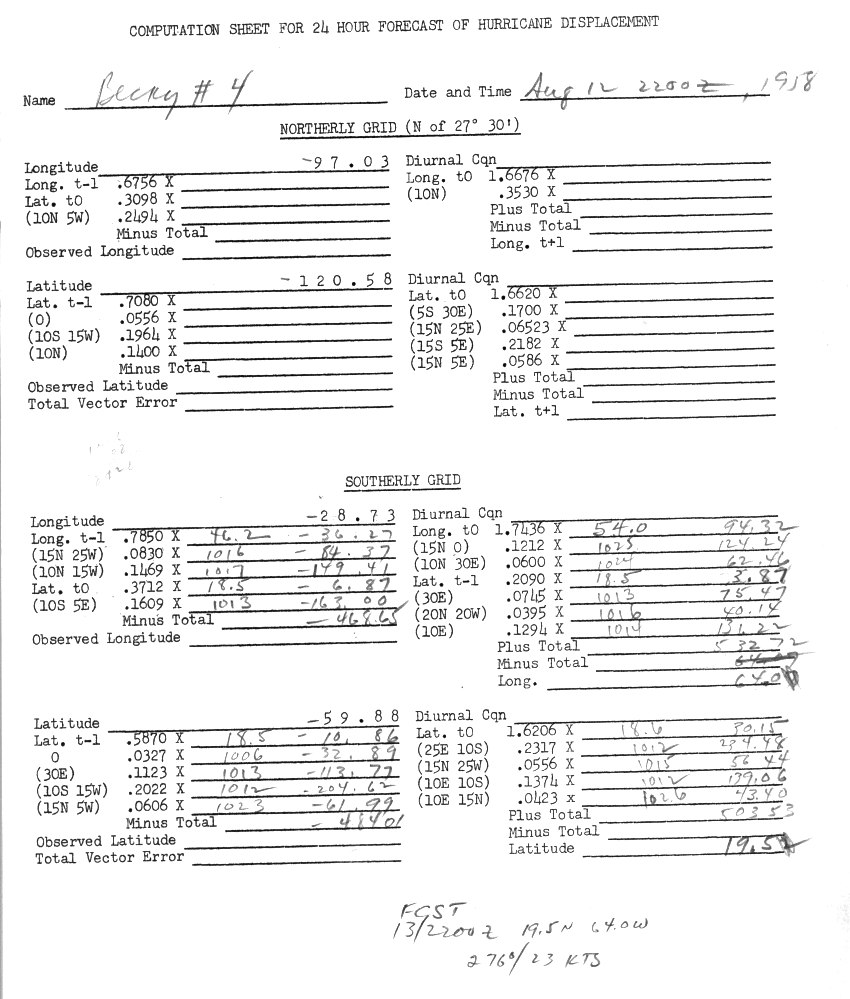 COMPUTATION SHEET FOR 24 HOUR FORECAST OF HURRICANE DISPLACEMENT
Name Becky # 4 Date and Time Aug 12 2200Z, 1958
NORTHERLY GRID (N of 27° 30')
Longitude -97.03
Long. t-1 .6756 X
Lat. t0 .3098 X
(10N 5W) .2494 X
Minus Total
Observed Longitude
Diurnal Cqn
Long. t0 1.6676 X
(10N) .3530 X
Plus Total
Minus Total
Long. t+1
Latitude -120.58
Lat. t-1 .7080 X
(0) .0556 X
(10S 15W) .1964 X
(10N) .1400 X
Minus Total
Observed Latitude
Total Vector Error
Diurnal Cqn
Lat. t0 1.6620 X
(5S 30E) .1700 X
(15N 25E) .06523 X
(15S 5E) .2182 X
(15N 5E) .0586 X
Plus Total
Minus Total
Lat. t+1
SOUTHERLY GRID
Longitude -28.73
Long. t-1 .7850 X 46.2 - 36.27
(15N 25W) .0830 X 1016 - 84.37
(10N 15W) .1469 X 1017 - 149.41
Lat. t0 .3712 X 18.5 - 6.87
(10S 5E) .1609 X 1013 -163.00
Minus Total - 468.65
Observed Longitude
Diurnal Cqn
Long. t0 1.7436 X 54.0 94.32
(15N 0) .1212 X 1025 124.24
(10N 30E) .0600 X 1024 62.46
Lat. t-1 .2090 X 18.5 3.87
(30E) .0745 X 1013 75.47
(20N 20W) .0395 X 1016 40.14
(10E) .1294 X 1014 131.22
Plus Total 532.72
Minus Total
Long. 64.0
Latitude -59.88
Lat. t-1 .5870 X 18.5 - 10.86
0 .0327 X 1006 - 32.89
(30E) .1123 X 1013 -113.77
(10S 15W) .2022 X 1012 -204.62
(15N 5W) .0606 X 1023 -61.99
Minus Total - 484.01
Observed Latitude
Total Vector Error
Diurnal Cqn
Lat. t0 1.6206 X 18.6 30.15
(25E 10S) .2317 X 1012 234.48
(15N 25W) .0556 X 1015 56.44
(10E 10S) .1374 X 1012 139.06
(10E 15N) .0423 x 1026 43.40
Plus Total 503.53
Minus Total
Latitude 19.5
FCST
13/2200Z 19.5N 64.0W
276°/23 KTS